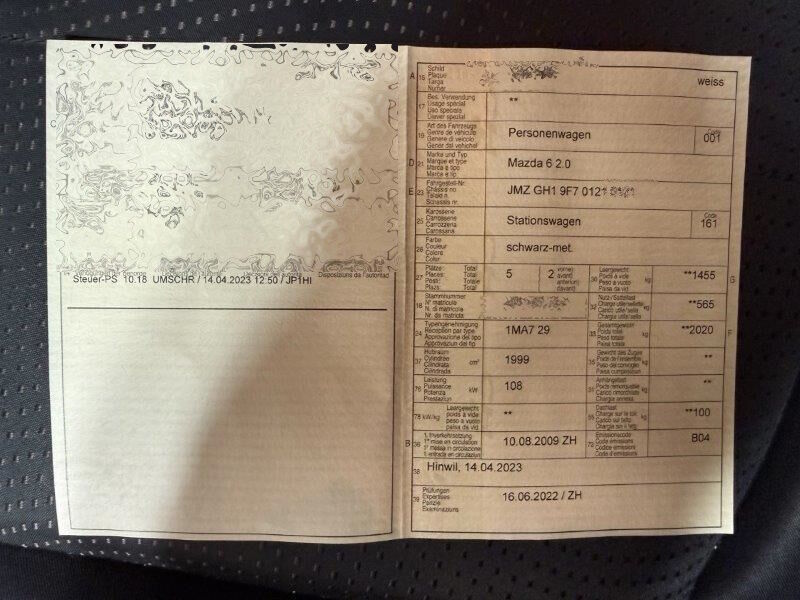 Steuer-PS 10.18 UMSCHR / 14.04.2023 12:50 / JP1HI
A 15 Schild Plaque Targa Numer
weiss
17 Bes. Verwendung Usage spécial Uso speciale
**
19 Art des Fahrzeugs Genre de véhicule Genere di veicolo Gener dal vehichel
Personenwagen
Code 001
D 21 Marke und Typ Marque et type Marca e tipo Marca e tip
Mazda 6 2.0
E 23 Fahrgestell-Nr. Châssis no Telaio n. Schassis nr.
JMZ GH1 9F7 0121
25 Karosserie Carrosserie Carrozzeria Carossaria
Stationswagen
Code 161
26 Farbe Couleur Colore Color
schwarz-met.
27 Plätze: Total Places: Total Posti: Totale Plazs: Total
5 2 vorne) avant) anteriori) davant)
30 Leergewicht Poids à vide Peso a vuoto Paisa da vid kg
**1455 G
18 Stammnummer N° matricule N. di matricola Nr. da matricla
32 Nutz-/Sattellast Charge utile/sellette Carico utile/sella Chargia utila/sella kg
**565
24 Typengenehmigung Réception par type Approvazione del tipo Approvaziun dal tip
1MA7 29
33 Gesamtgewicht Poids total Peso totale Paisa totala kg
**2020 F
37 Hubraum Cylindrée Cilindrata Cilindrada cm³
1999
35 Gewicht des Zuges Poids de l'ensemble Peso del convoglio Paisa cumplessiva kg
**
76 Leistung Puissance Potenza Prestaziun kW
108
31 Anhängelast Poids remorquable Carico rimorchiato Chargia annexa kg
**
78 kW/kg Leergewicht poids à vide peso a vuoto paisa da vid
**
55 Dachlast Charge sur le toit Carico sul tetto Chargia sin il tetg kg
**100
B 36 1. Inverkehrsetzung 1re mise en circulation 1a messa in circolazione 1. entrada en circulaziun
10.08.2009 ZH
72 Emissionscode Code émissions Codice emissioni Code d'emissiuns
B04
38 Hinwil, 14.04.2023
39 Prüfungen Expertises Perizie Examinaziuns
16.06.2022 / ZH